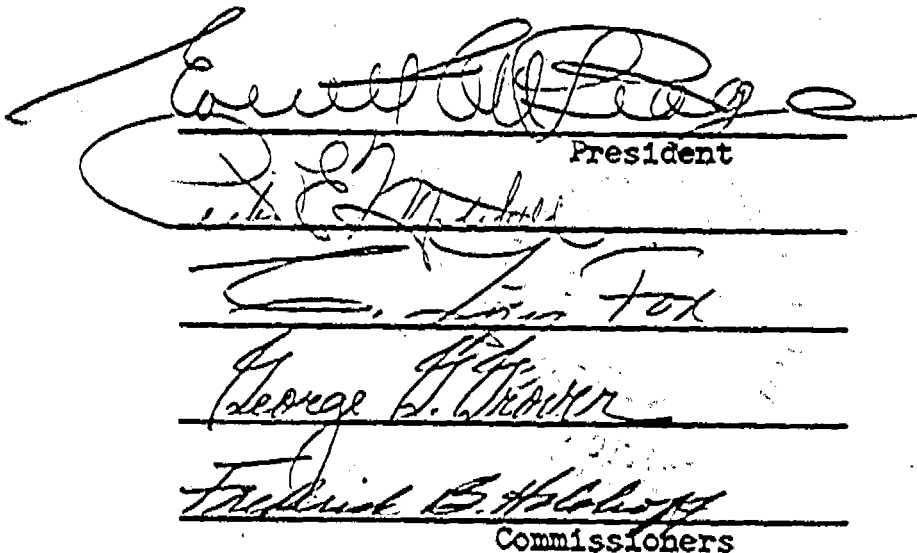 Everett C. McKeage
President
E. Mitchell
C. Lyn Fox
George G. Grover
Frederick B. Holoboff
Commissioners